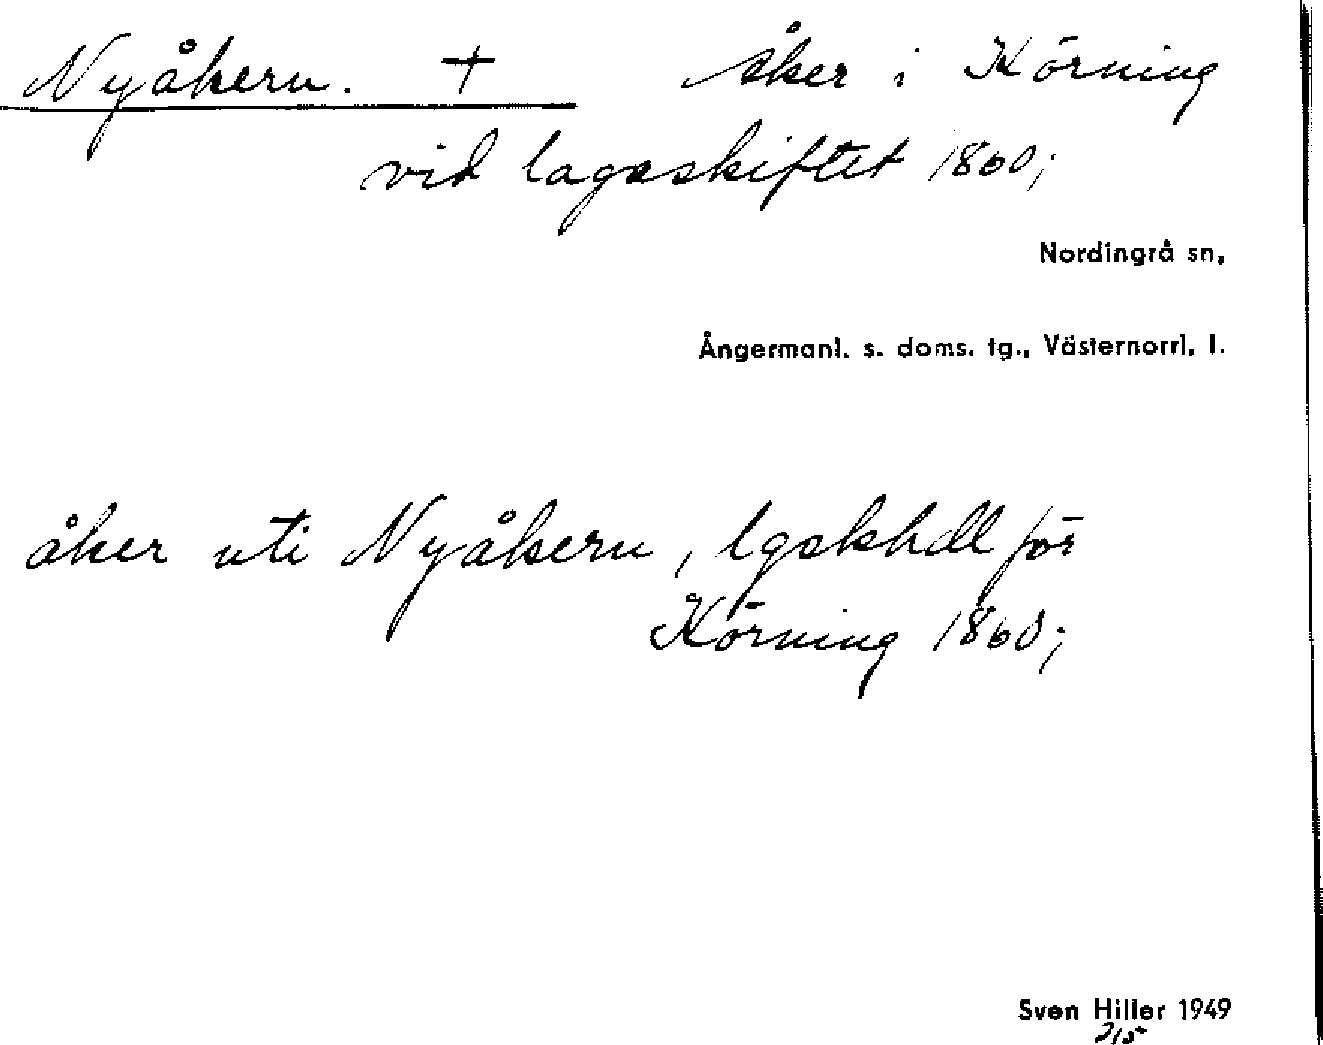 Nyåkern. † åker i Körning
vid lagaskiftet 1860;
Nordingrå sn,
Ångermanl. s. doms. tg., Västernorrl. l.
åker uti Nyåkern, lgskhdl för
Körning 1860;
Sven Hiller 1949